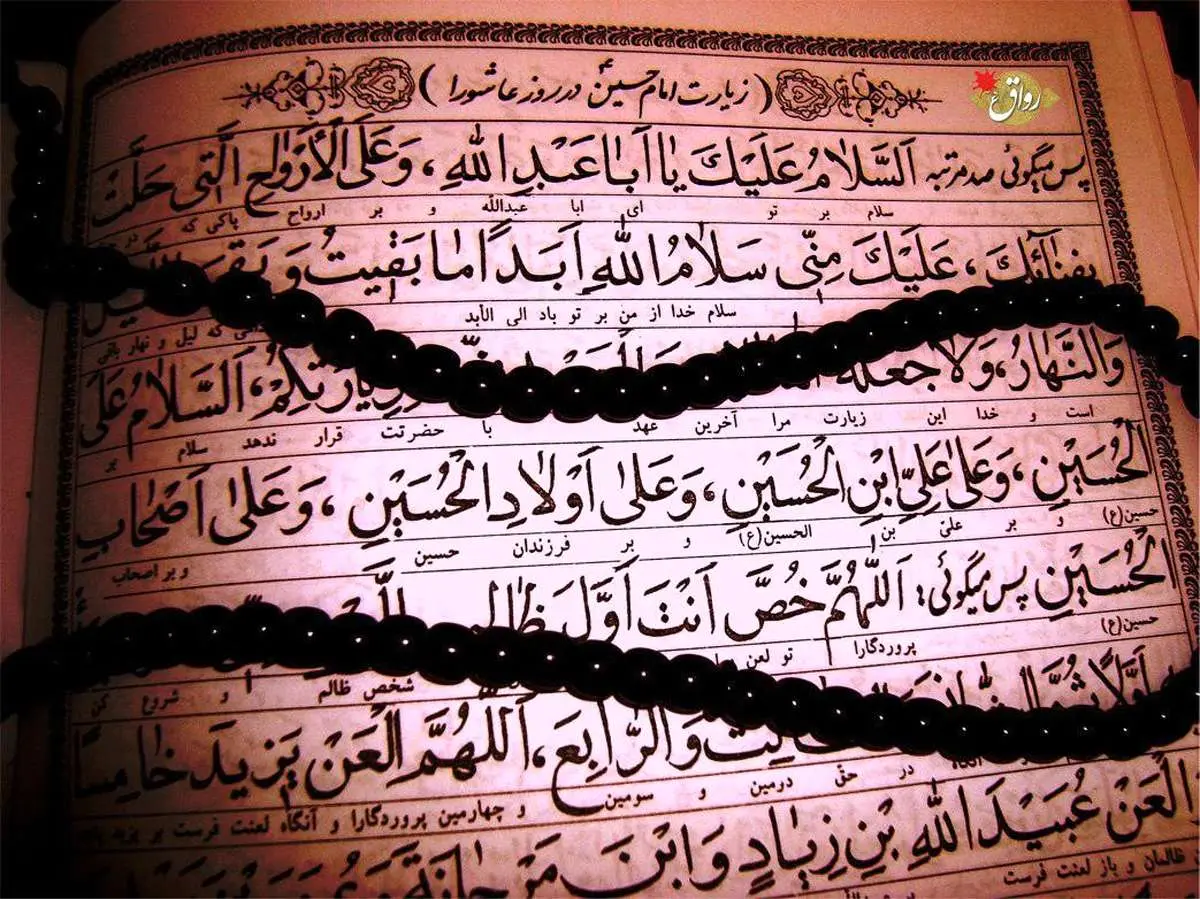 ( زیارت امام حسین ع در روز عاشورا )
رواق
پس میگوئی صد مرتبه اَلسَّلامُ عَلَیْكَ یا اَبا عَبْدِ اللهِ، وَعَلَى الْاَرْواحِ الَّتی حَلَّتْ
سلام بر تو ای ابا عبدالله و بر ارواح پاکی که در
بِفِنآئِكَ، عَلَیْكَ مِنّی سَلامُ اللهِ اَبَدًا ما بَقیتُ وَ بَقِیَ
سلام خدا از من بر تو باد الی الأبد که لیل و نهار باقی
وَالنَّهارُ، وَلا جَعَلَهُ زِیارَتِكُمْ، اَلسَّلامُ عَلَى
است و خدا این زیارت مرا آخرین عهد با حضرتت قرار ندهد سلام بر
الْحُسَیْنِ، وَعَلى عَلِیِّ ابْنِ الْحُسَیْنِ، وَعَلى اَوْلادِ الْحُسَیْنِ، وَعَلى اَصْحابِ
حسین(ع) و بر علیّ بن الحسین(ع) و بر فرزندان حسین و بر اصحاب
الْحُسَیْنِ پس میگوئی: اَللّهُمَّ خُصَّ اَنْتَ اَوَّلَ
حسین(ع) پروردگارا تو لعن
شخص ظالم و شروع کن
وَالرّابِعَ، اَللّهُمَّ الْعَنْ یَزیدَ خامِسًا
در حقّ دومین و سومین و چهارمین پروردگارا و آنگاه لعنت فرست بر یزید
الْعَنْ عُبَیْدَ اللهِ بْنِ زِیادٍ وَ ابْنَ مَرْجانَةَ
ظالمان و باز لعنت فرست